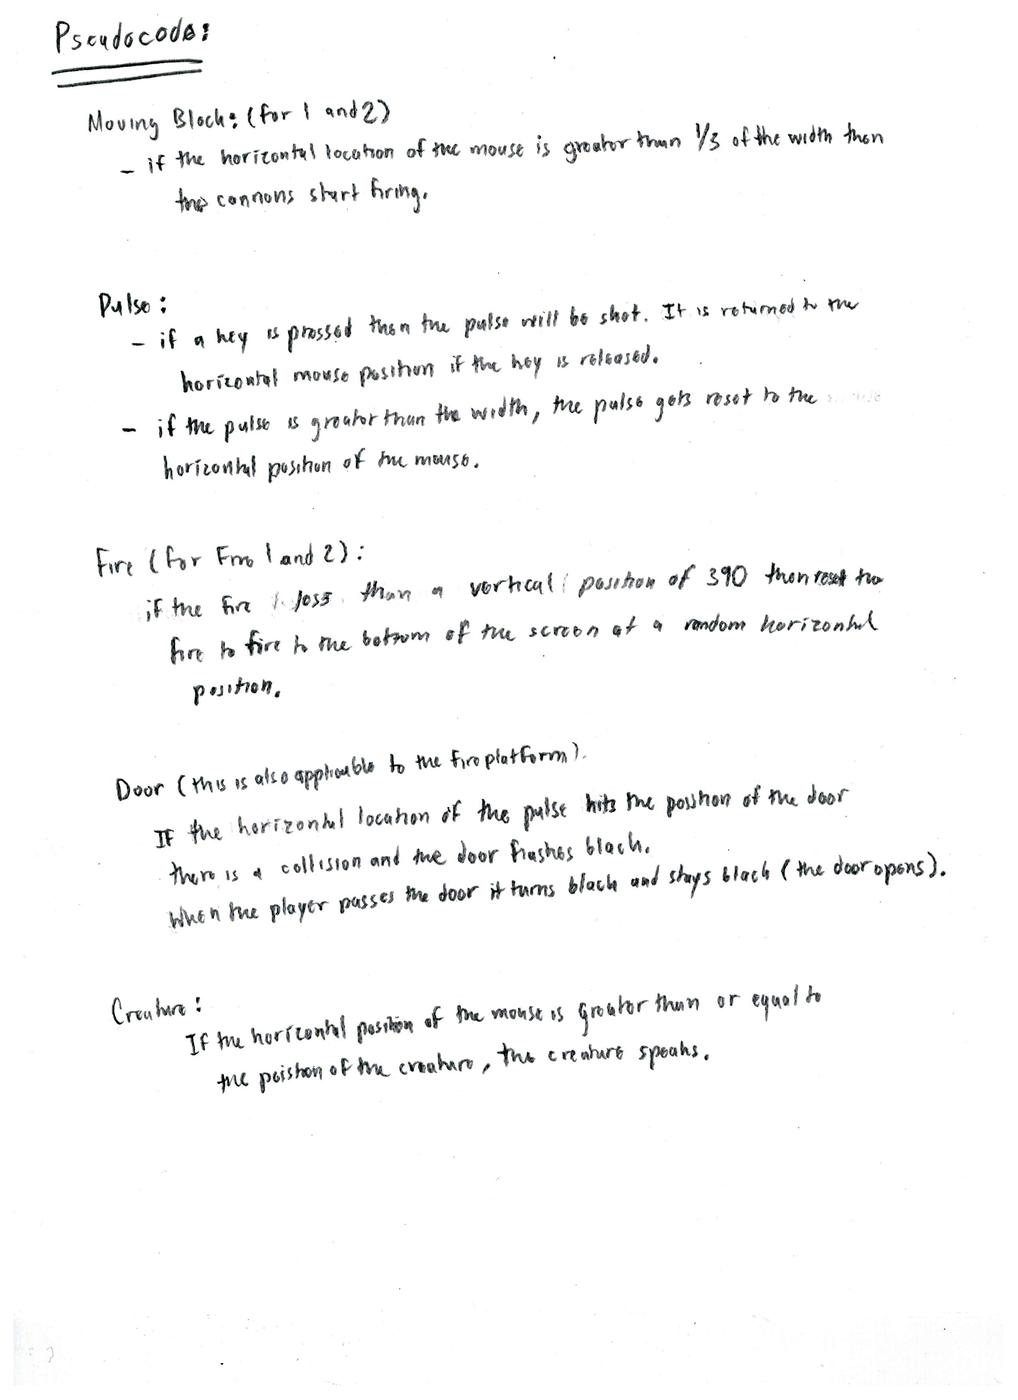 Pseudocode:
Moving Block: (for 1 and 2)
- if the horizontal location of the mouse is greater than 1/3 of the width then
the cannons start firing.
Pulse:
- if a key is pressed then the pulse will be shot. It is returned to the
horizontal mouse position if the key is released.
- if the pulse is greater than the width, the pulse gets reset to the
horizontal position of the mouse.
Fire (for Fire 1 and 2):
if the fire less than a vertical position of 390 then reset the
fire to fire to the bottom of the screen at a random horizontal
position.
Door (this is also applicable to the fire platform).
If the horizontal location of the pulse hits the position of the door
there is a collision and the door flashes black.
When the player passes the door it turns black and stays black (the door opens).
Creature:
If the horizontal position of the mouse is greater than or equal to
the poistion of the creature, the creature speaks.